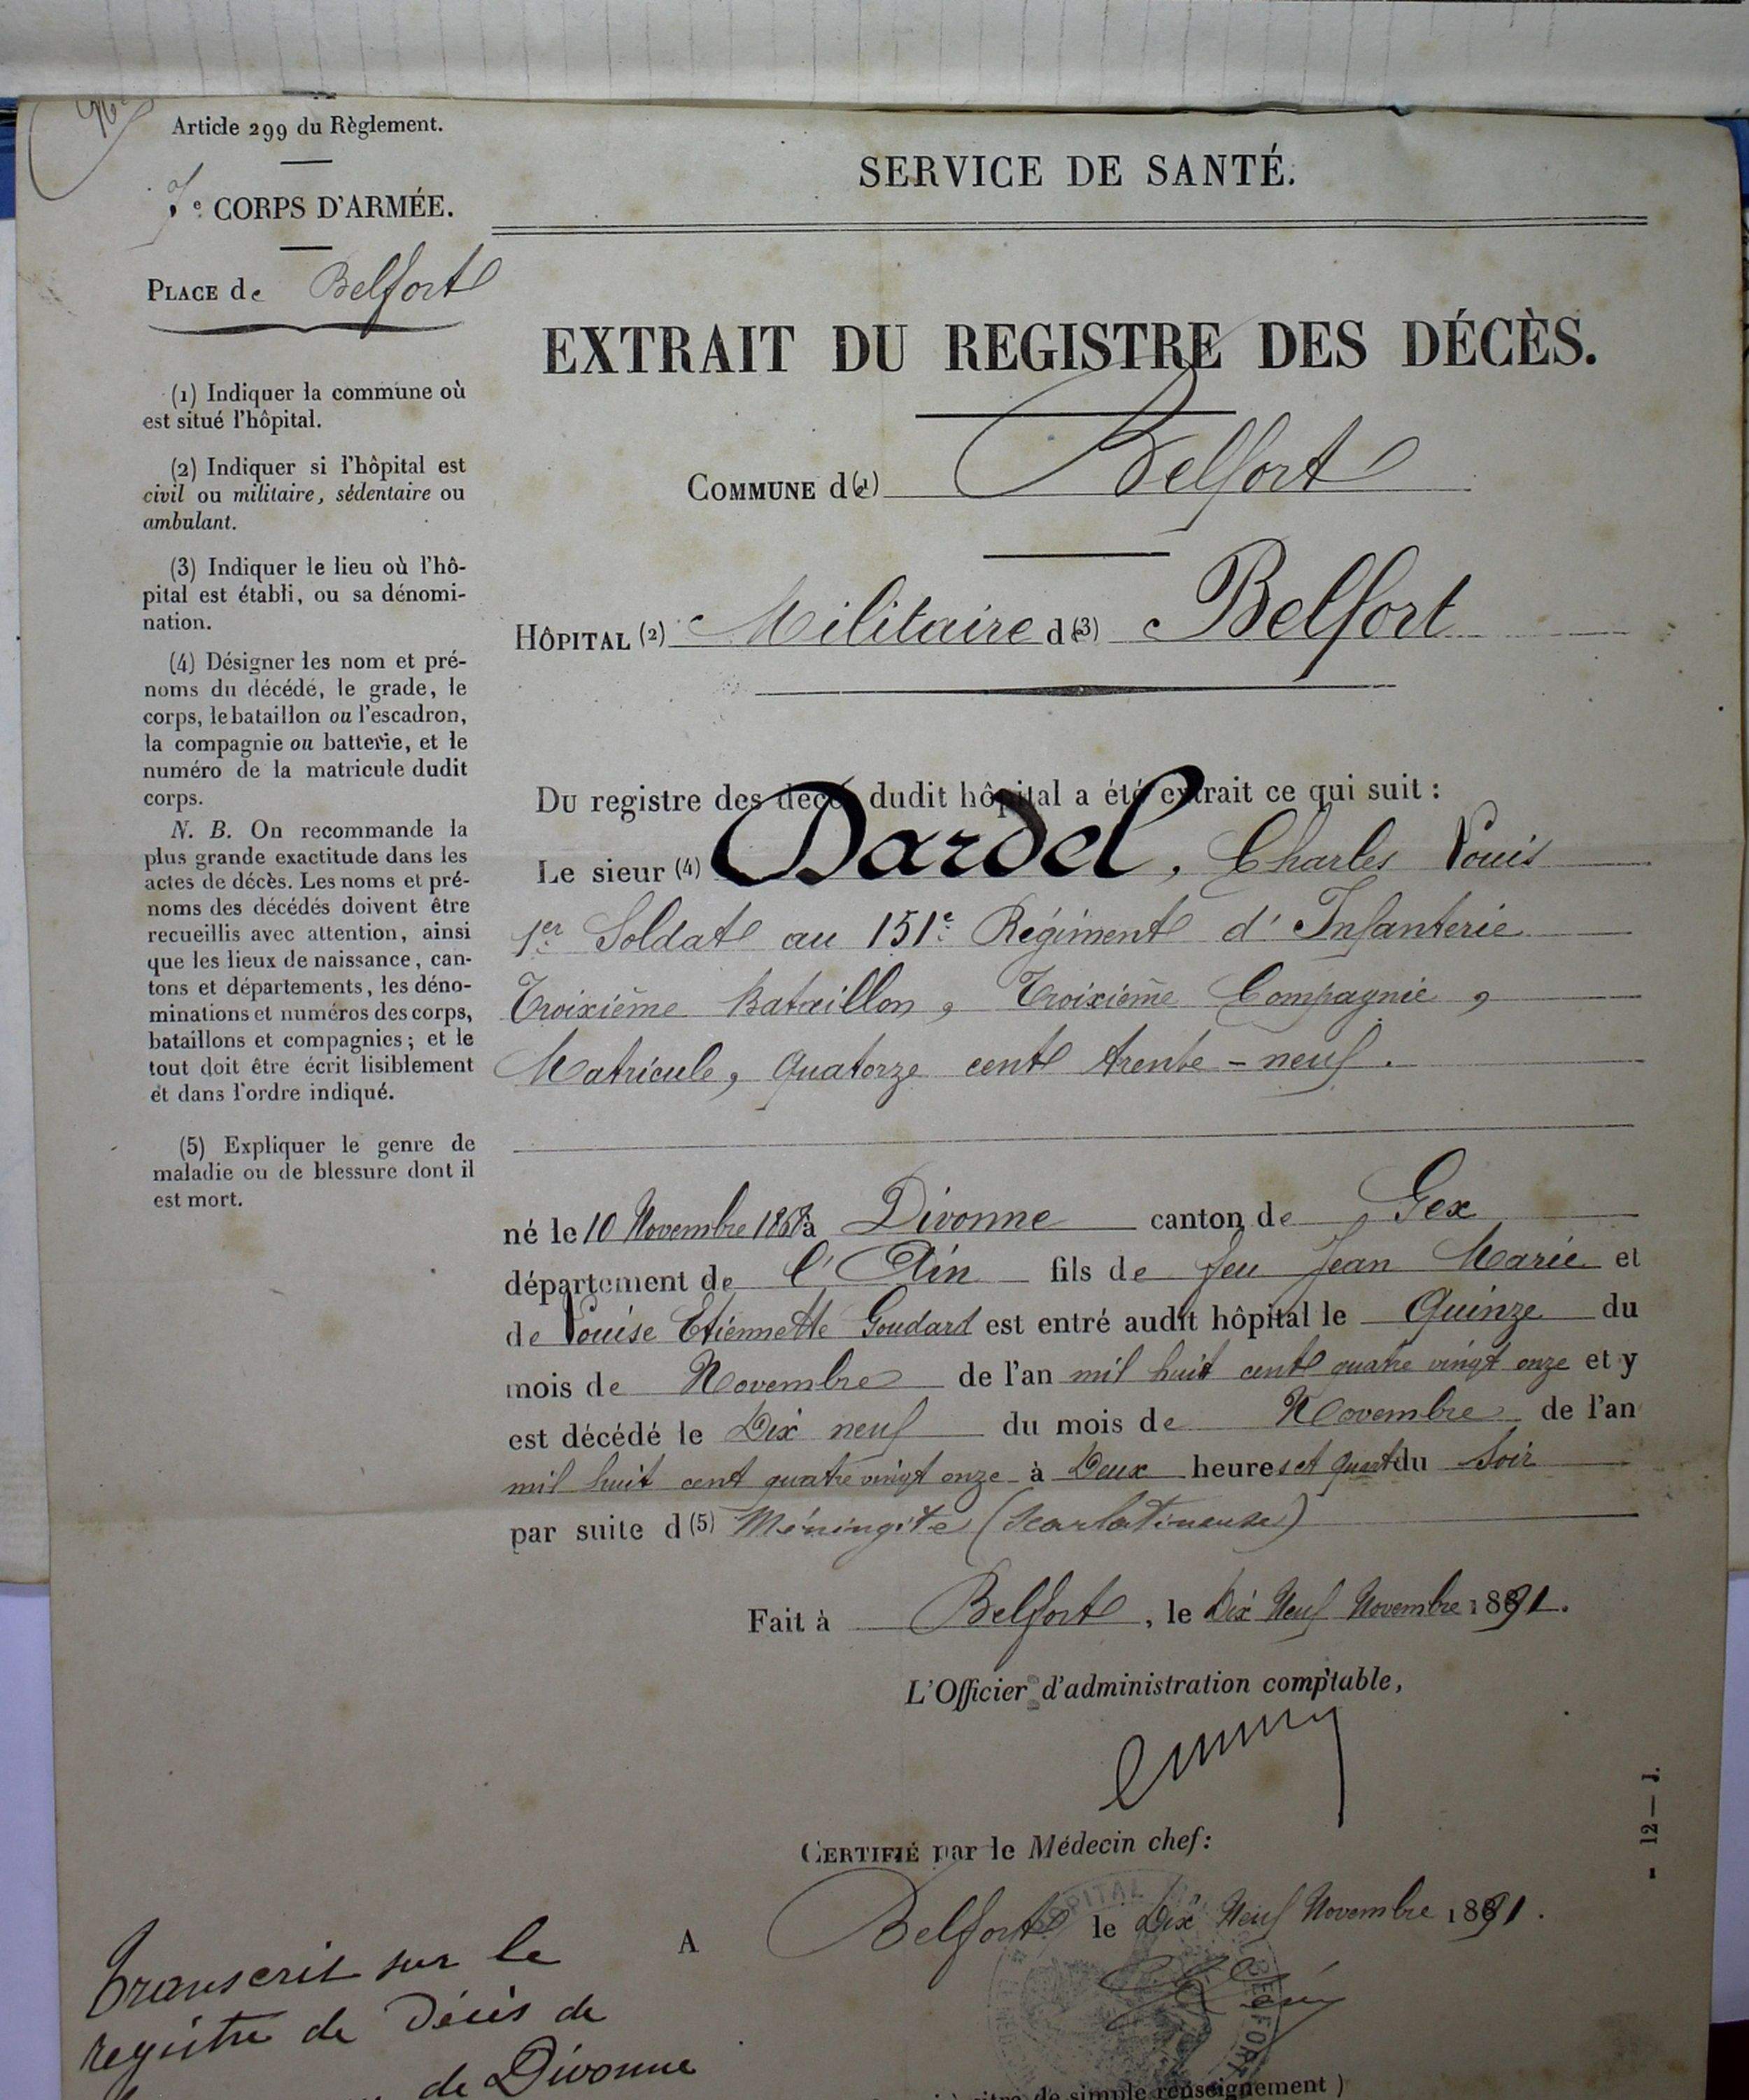 Article 299 du Règlement.
7e CORPS D'ARMÉE.
PLACE de Belfort
(1) Indiquer la commune où
est situé l'hôpital.
(2) Indiquer si l'hôpital est
civil ou militaire, sédentaire ou
ambulant.
(3) Indiquer le lieu où l'hô-
pital est établi, ou sa dénomi-
nation.
(4) Désigner les nom et pré-
noms du décédé, le grade, le
corps, le bataillon ou l'escadron,
la compagnie ou batterie, et le
numéro de la matricule dudit
corps.
N. B. On recommande la
plus grande exactitude dans les
actes de décès. Les noms et pré-
noms des décédés doivent être
recueillis avec attention, ainsi
que les lieux de naissance, can-
tons et départements, les déno-
minations et numéros des corps,
bataillons et compagnies; et le
tout doit être écrit lisiblement
et dans l'ordre indiqué.
(5) Expliquer le genre de
maladie ou de blessure dont il
est mort.
SERVICE DE SANTÉ.
EXTRAIT DU REGISTRE DES DÉCÈS.
COMMUNE de (1) Belfort
HÔPITAL (2) Militaire de (3) Belfort
Du registre des décès dudit hôpital a été extrait ce qui suit :
Le sieur (4) Dardel, Charles Louis
1er Soldat au 151e Régiment d'Infanterie
Troixième Bataillon, Troixième Compagnie,
Matricule, Quatorze cent trente-neuf.
né le 10 Novembre 1868 à Divonne canton de Gex
département de l'Ain fils de feu Jean Marie et
de Louise Etiennette Goudard est entré audit hôpital le Quinze du
mois de Novembre de l'an mil huit cent quatre vingt onze et y
est décédé le Dix neuf du mois de Novembre de l'an
mil huit cent quatre vingt onze à Deux heures et Quart du Soir
par suite d (5) Méningite (Scarlatineuse)
Fait à Belfort, le Dix Neuf Novembre 1891.
L'Officier d'administration comptable,
CERTIFIÉ par le Médecin chef:
A Belfort le Dix Neuf Novembre 1891.
- 12 - J.
Transcrit sur le
registre de Décès de
de Divonne
titre de simple renseignement )